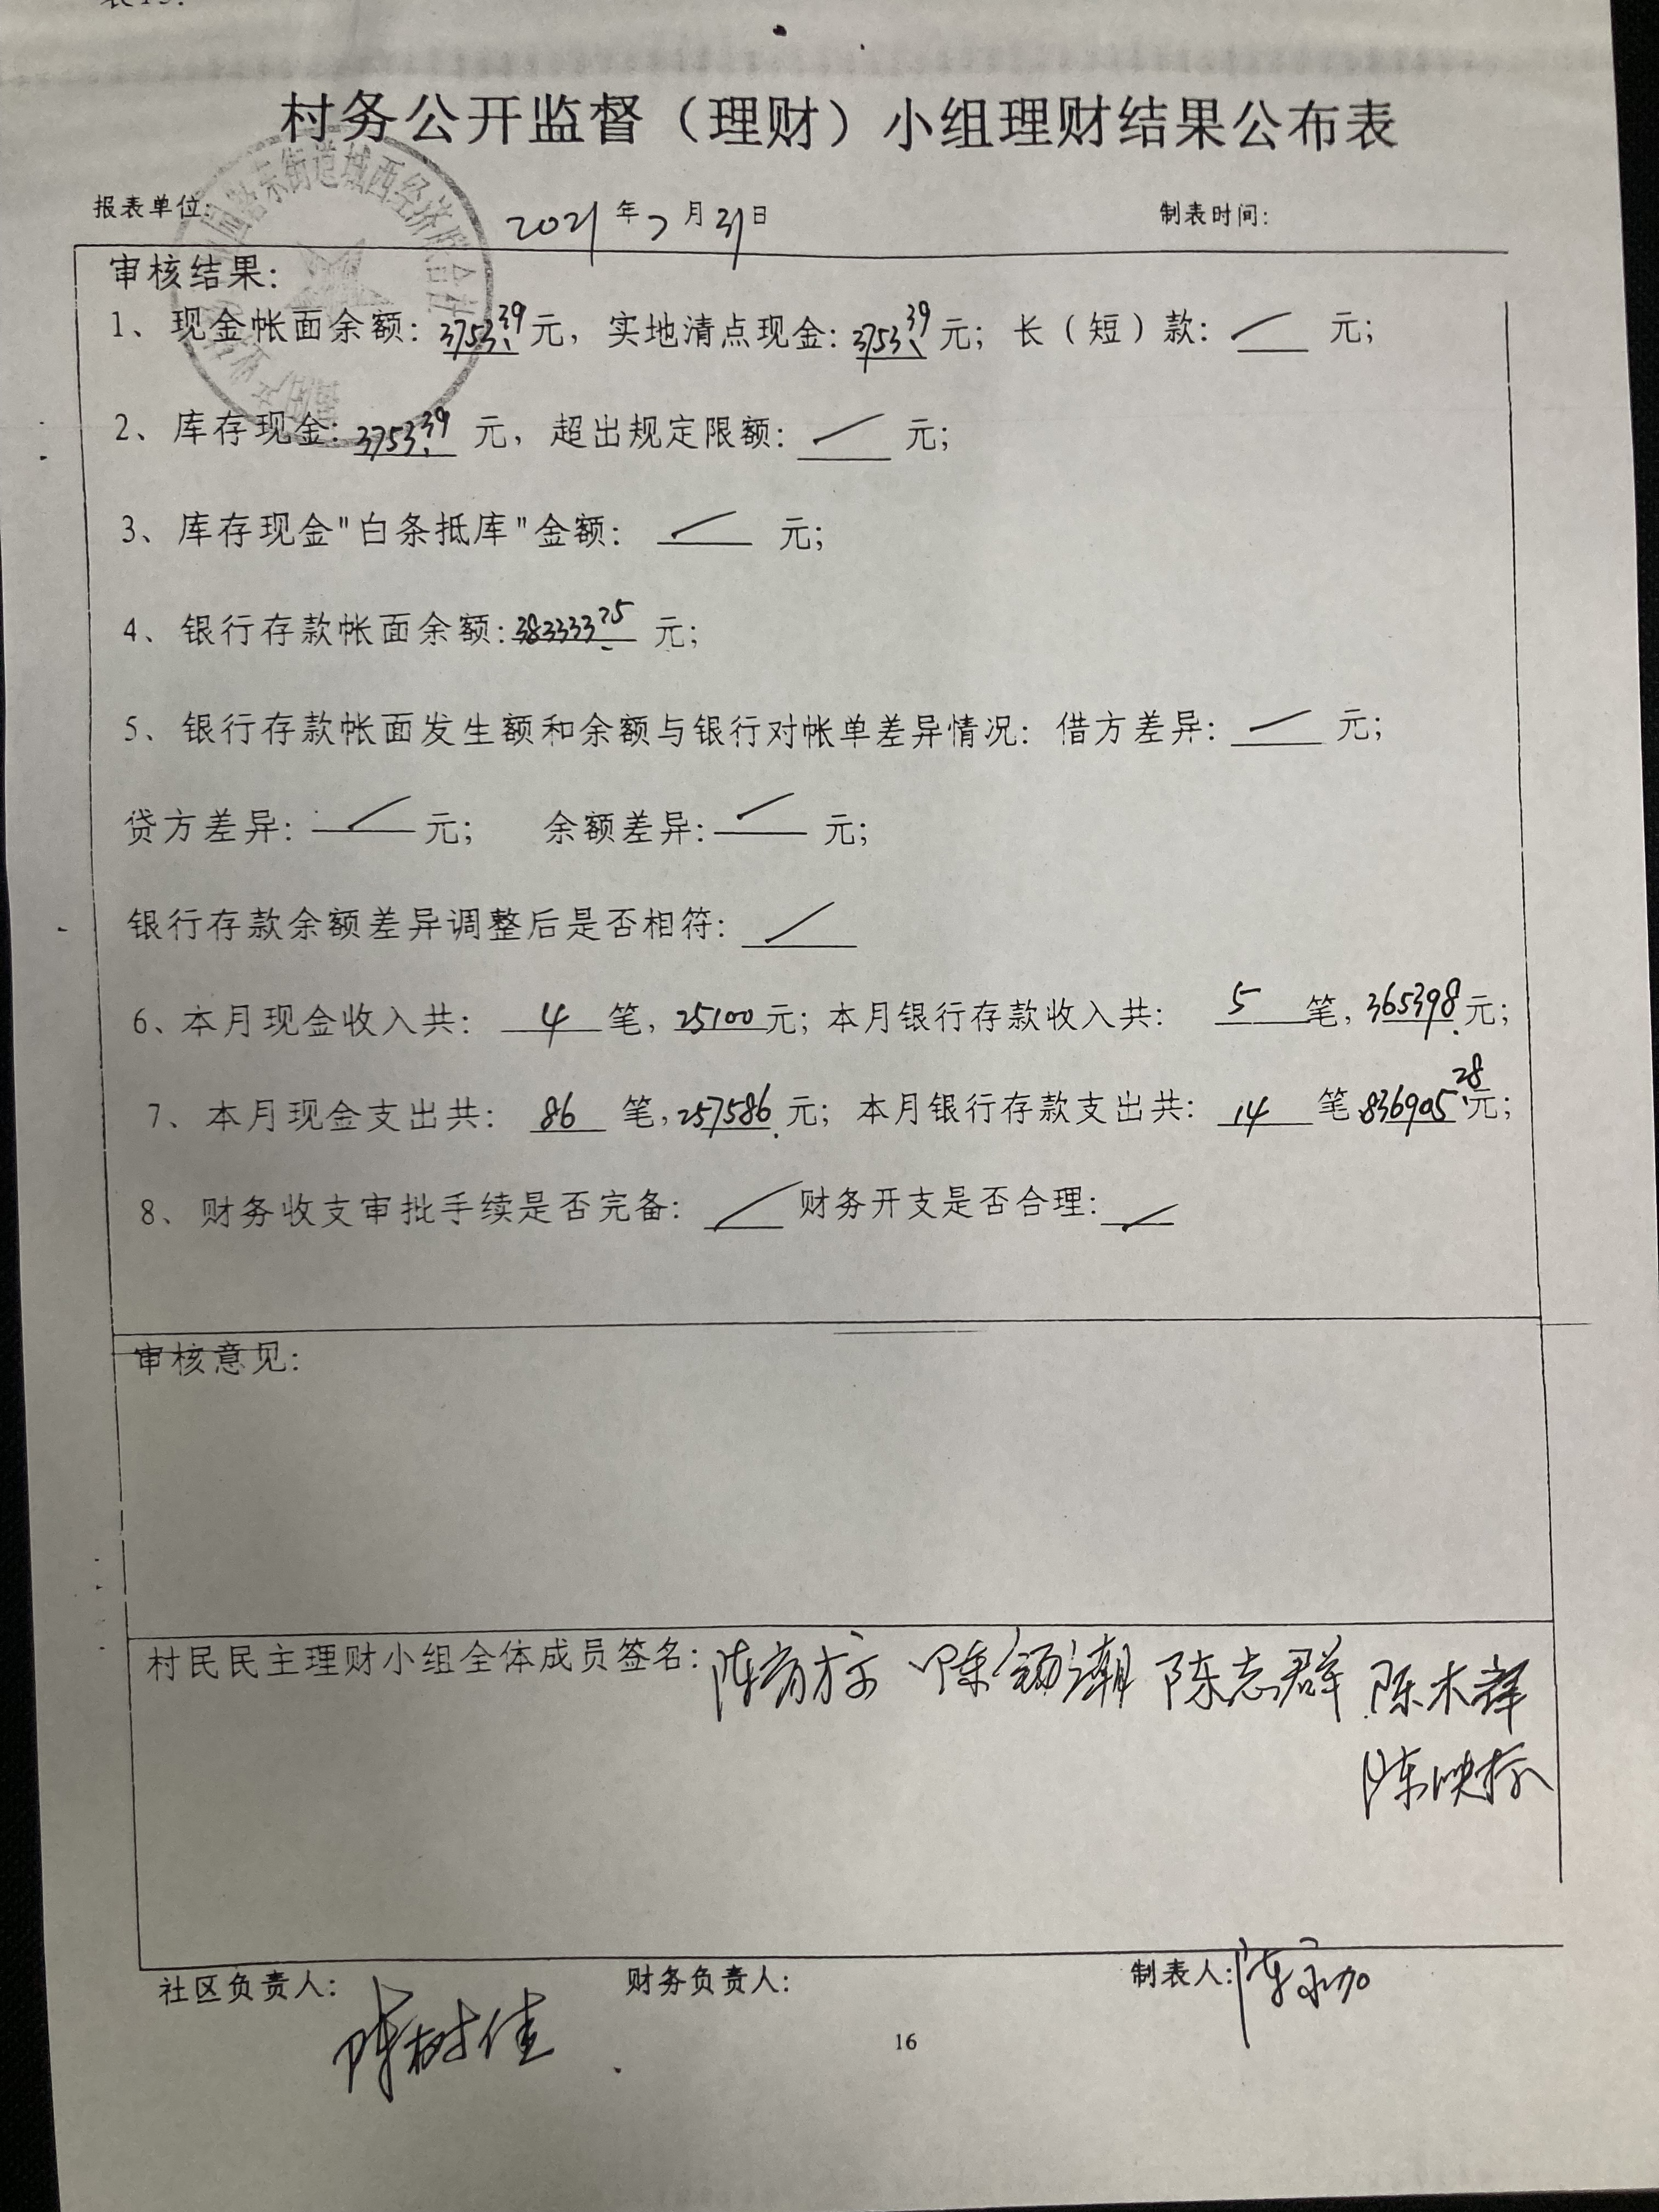 村务公开监督（理财）小组理财结果公布表
报表单位: 2021年7月31日 制表时间:
审核结果:
1、现金帐面余额: 3753.39元, 实地清点现金: 3753.39元; 长（短）款: / 元;
2、库存现金: 3753.39 元, 超出规定限额: / 元;
3、库存现金"白条抵库"金额: / 元;
4、银行存款帐面余额: 383333.75 元;
5、银行存款帐面发生额和余额与银行对帐单差异情况: 借方差异: / 元;
贷方差异: / 元; 余额差异: / 元;
银行存款余额差异调整后是否相符: /
6、本月现金收入共: 4 笔, 25100元; 本月银行存款收入共: 5 笔, 365398.元;
7、本月现金支出共: 86 笔, 257586. 元; 本月银行存款支出共: 14 笔 836905.28元;
8、财务收支审批手续是否完备: / 财务开支是否合理: /
审核意见:
村民民主理财小组全体成员签名: 陈志群 陈木群
陈映标
社区负责人: 财务负责人: 制表人:
陈树佳
16